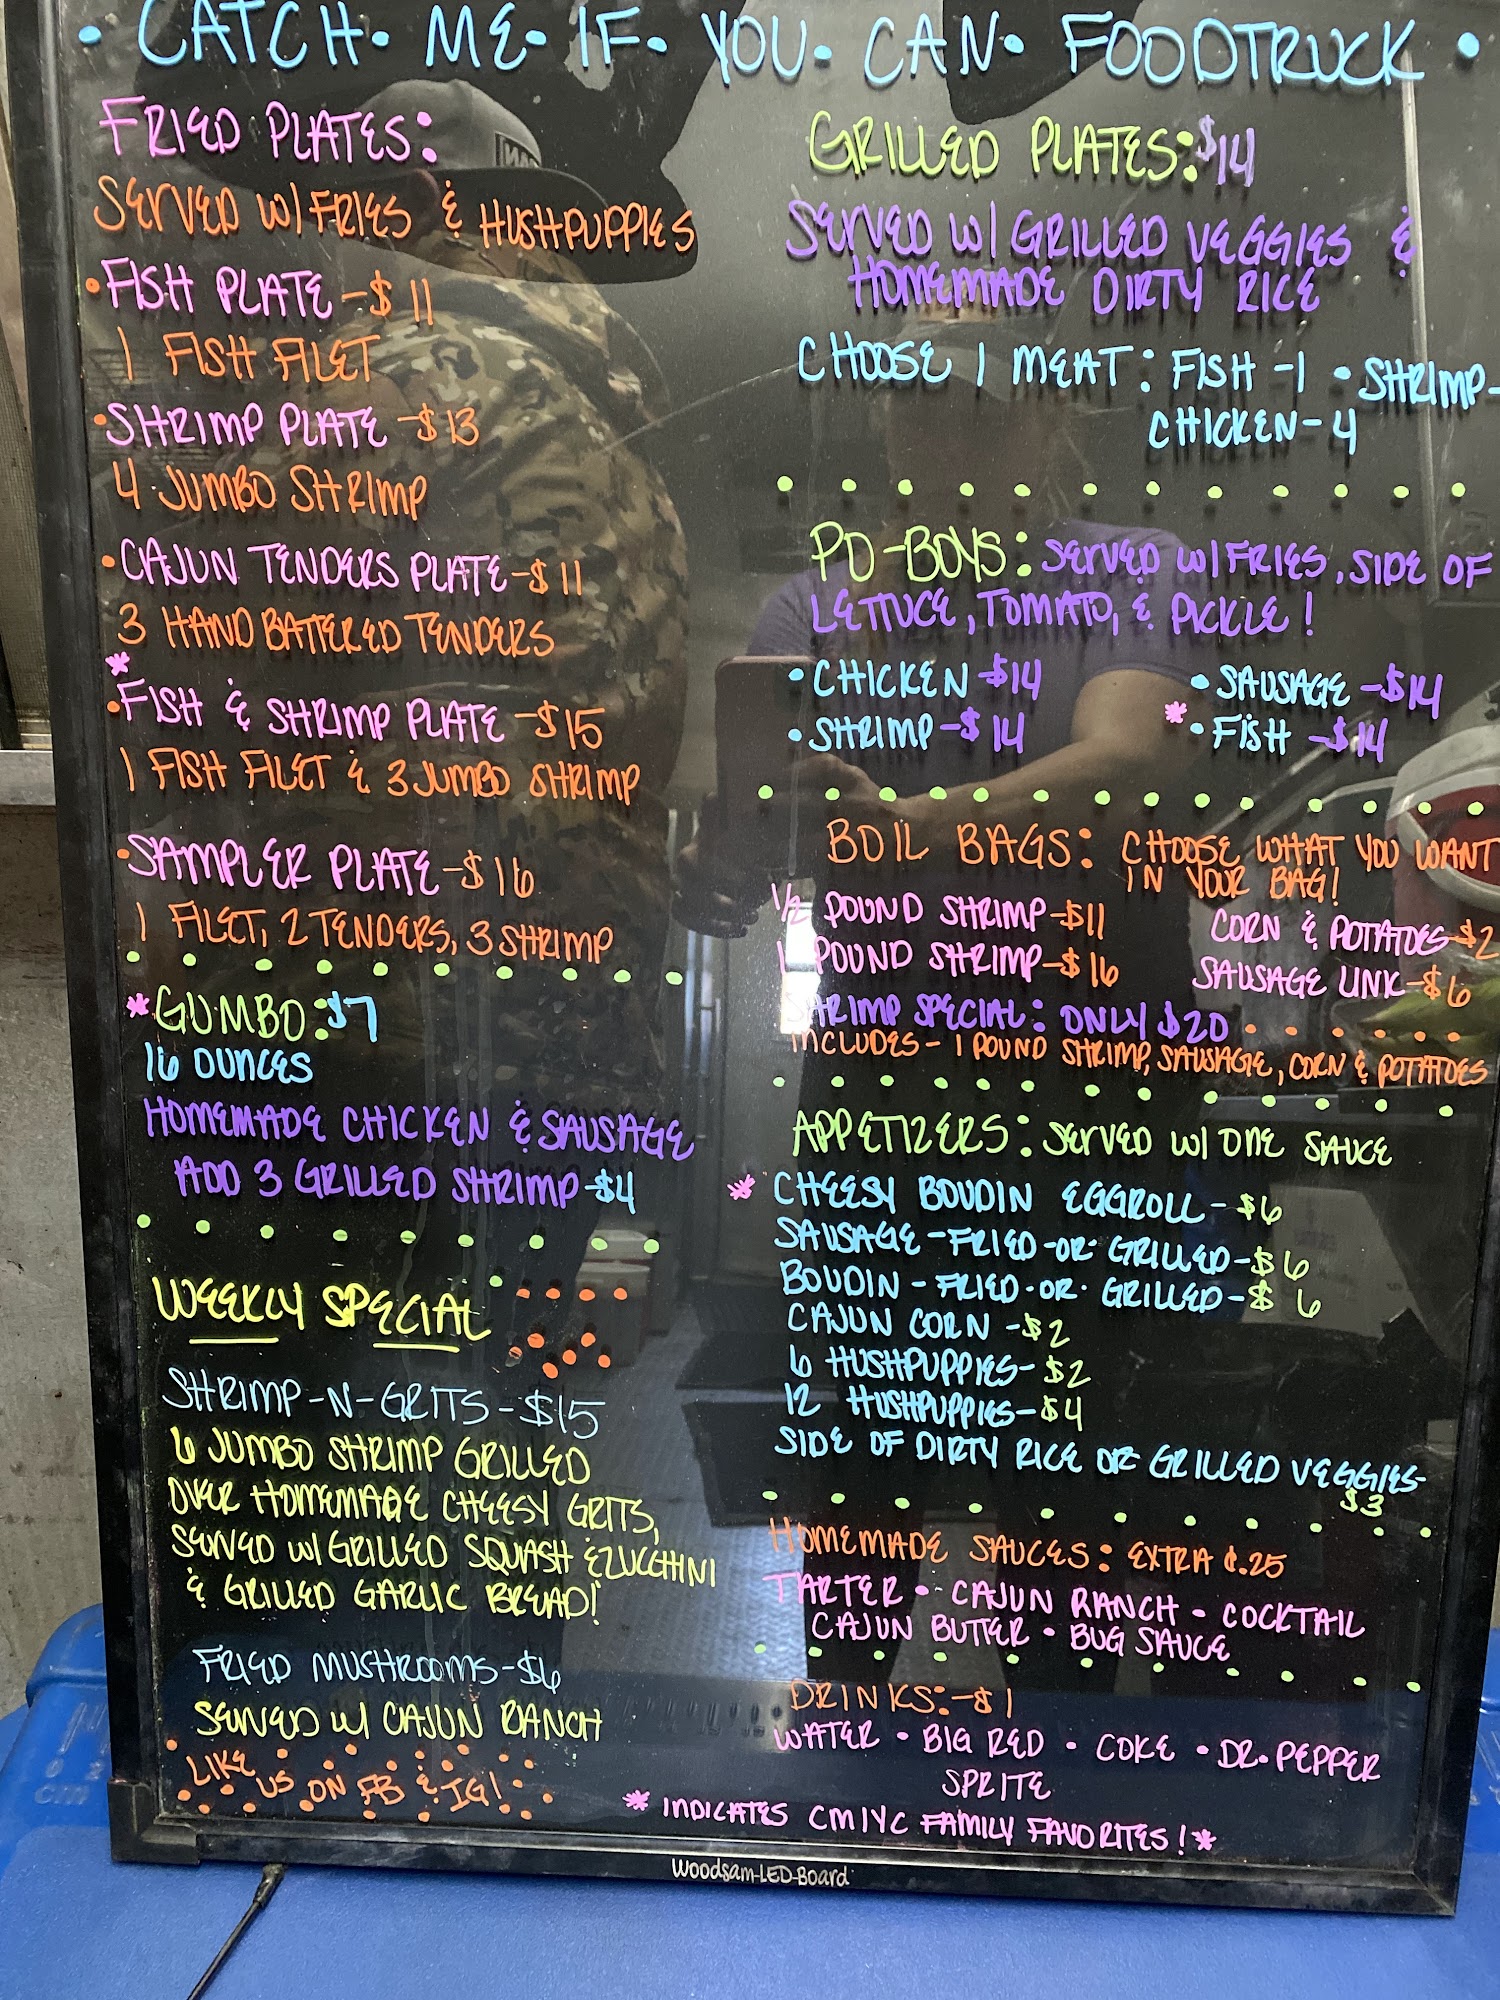 • CATCH • ME • IF • YOU • CAN • FOODTRUCK •
FRIED PLATES:
SERVED W/ FRIES & HUSHPUPPIES
• FISH PLATE - $11
1 FISH FILET
• SHRIMP PLATE - $13
4 JUMBO SHRIMP
• CAJUN TENDERS PLATE - $11
3 HAND BATTERED TENDERS
*
• FISH & SHRIMP PLATE - $15
1 FISH FILET & 3 JUMBO SHRIMP
• SAMPLER PLATE - $16
1 FILET, 2 TENDERS, 3 SHRIMP
* GUMBO: $7
16 OUNCES
HOMEMADE CHICKEN & SAUSAGE
ADD 3 GRILLED SHRIMP - $4
WEEKLY SPECIAL
SHRIMP-N-GRITS - $15
6 JUMBO SHRIMP GRILLED
OVER HOMEMADE CHEESY GRITS,
SERVED W/ GRILLED SQUASH & ZUCCHINI
& GRILLED GARLIC BREAD!
FRIED MUSHROOMS - $6
SERVED W/ CAJUN RANCH
LIKE US ON FB & IG!
GRILLED PLATES: $14
SERVED W/ GRILLED VEGGIES &
HOMEMADE DIRTY RICE
CHOOSE 1 MEAT: FISH - 1 • SHRIMP -
CHICKEN - 4
PO-BOYS: SERVED W/ FRIES, SIDE OF
LETTUCE, TOMATO, & PICKLE!
• CHICKEN - $14 • SAUSAGE - $14
• SHRIMP - $14 * • FISH - $14
BOIL BAGS: CHOOSE WHAT YOU WANT
IN YOUR BAG!
1/2 POUND SHRIMP - $11 CORN & POTATOES - $2
1 POUND SHRIMP - $16 SAUSAGE LINK - $6
SHRIMP SPECIAL: ONLY $20
INCLUDES - 1 POUND SHRIMP, SAUSAGE, CORN & POTATOES
APPETIZERS: SERVED W/ ONE SAUCE
* CHEESY BOUDIN EGGROLL - $6
SAUSAGE - FRIED - OR - GRILLED - $6
BOUDIN - FRIED • OR • GRILLED - $6
CAJUN CORN - $2
6 HUSHPUPPIES - $2
12 HUSHPUPPIES - $4
SIDE OF DIRTY RICE OR GRILLED VEGGIES -
$3
HOMEMADE SAUCES: EXTRA $.25
TARTER • CAJUN RANCH • COCKTAIL
CAJUN BUTTER • BUG SAUCE
DRINKS: - $1
WATER • BIG RED • COKE • DR. PEPPER
SPRITE
* INDICATES CMIYC FAMILY FAVORITES! *
Woodsam-LED-Board